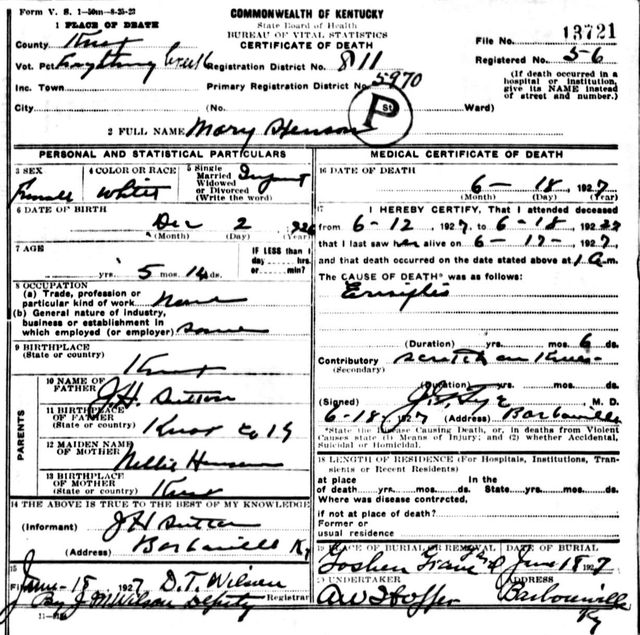 Form V. S. 1-50m-8-25-22
1 PLACE OF DEATH
COMMONWEALTH OF KENTUCKY
State Board of Health
BUREAU OF VITAL STATISTICS
CERTIFICATE OF DEATH
File No. 13721
Registered No. 56
(If death occurred in a hospital or institution, give its NAME instead of street and number.)
County Knox
Vot. Pct. Creek Registration District No. 811
Inc. Town Primary Registration District No. 5970
City (No. St. Ward)
P
2 FULL NAME Mary Henson
PERSONAL AND STATISTICAL PARTICULARS
3 SEX
Female
4 COLOR OR RACE
White
5 Single
Married
Widowed
or Divorced
(Write the word)
Infant
6 DATE OF BIRTH
Dec 2 926
(Month) (Day) (Year)
7 AGE
yrs. 5 mos. 14 ds.
IF LESS than 1
day hrs.
or min.?
8 OCCUPATION
(a) Trade, profession or
particular kind of work None
(b) General nature of industry,
business or establishment in
which employed (or employer) same
9 BIRTHPLACE
(State or country)
Knox
PARENTS
10 NAME OF
FATHER
J.H. Sutton
11 BIRTHPLACE
OF FATHER
(State or country)
Knox Co Ky
12 MAIDEN NAME
OF MOTHER
Nellie Henson
13 BIRTHPLACE
OF MOTHER
(State or country)
Knox
14 THE ABOVE IS TRUE TO THE BEST OF MY KNOWLEDGE
(Informant) J H Sutton
(Address) Barbourville Ky
15
June-18 1927 D.T. Wilson
By J M Wilson Deputy Registrar
MEDICAL CERTIFICATE OF DEATH
16 DATE OF DEATH
6-18, 1927
(Month) (Day) (Year)
17 I HEREBY CERTIFY, That I attended deceased
from 6-12, 1927, to 6-18, 1927
that I last saw her alive on 6-17-, 1927,
and that death occurred on the date stated above at 1 a.m.
The CAUSE OF DEATH* was as follows:
(Duration) yrs. mos. 6 ds.
Contributory scratch on Knee
(Secondary)
(Duration) yrs. mos. ds.
(Signed) M. D.
6-18, 1927 (Address) Barbourville
*State the Disease Causing Death, or, in deaths from Violent
Causes state (1) Means of Injury; and (2) whether Accidental,
Suicidal or Homicidal.
18 LENGTH OF RESIDENCE (For Hospitals, Institutions, Transients or Recent Residents)
at place
of death yrs. mos. ds.
In the
State yrs. mos. ds.
Where was disease contrected,
if not at place of death?
Former or
usual residence
19 PLACE OF BURIAL OR REMOVAL
Goshen Grave Yd
DATE OF BURIAL
June 18 1927
20 UNDERTAKER
AW Hopper
ADDRESS
Barbourville
Ky